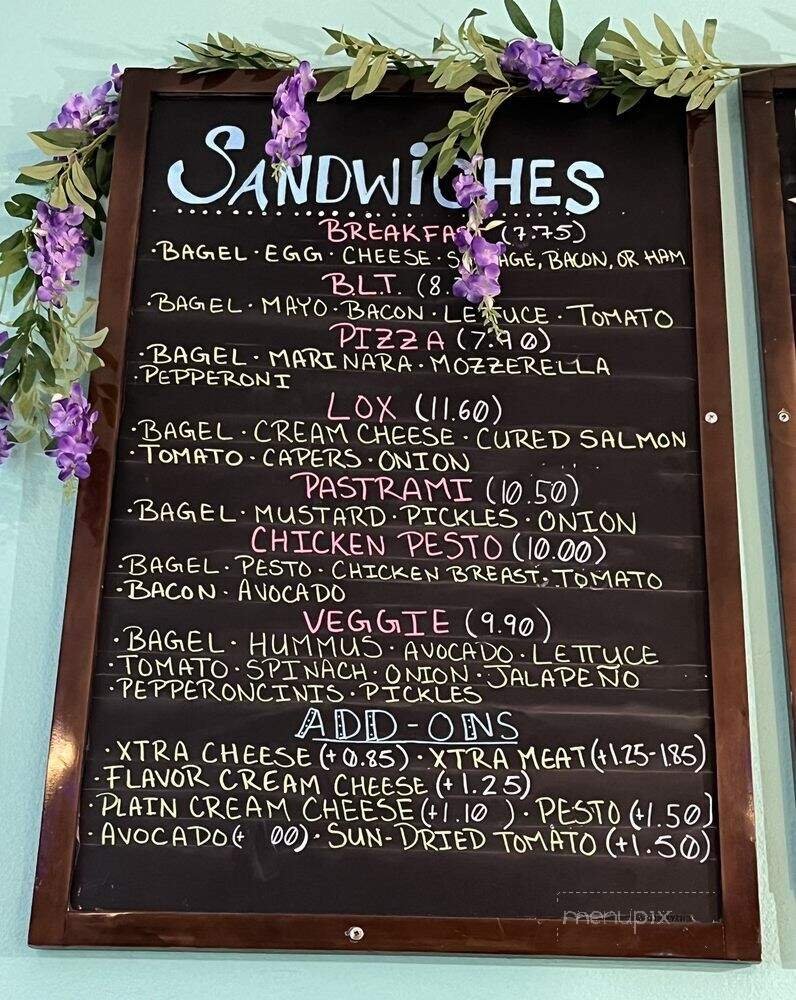 SANDWICHES
BREAKFAS (7.75)
·BAGEL·EGG·CHEESE·S AGE, BACON, OR HAM
B.L.T. (8.
·BAGEL·MAYO·BACON·LETTUCE·TOMATO
PIZZA (7.90)
·BAGEL·MARINARA·MOZZERELLA
·PEPPERONI
LOX (11.60)
·BAGEL·CREAM CHEESE·CURED SALMON
·TOMATO·CAPERS·ONION
PASTRAMI (10.50)
·BAGEL·MUSTARD·PICKLES·ONION
CHICKEN PESTO (10.00)
·BAGEL·PESTO·CHICKEN BREAST·TOMATO
·BACON·AVOCADO
VEGGIE (9.90)
·BAGEL·HUMMUS·AVOCADO·LETTUCE
·TOMATO·SPINACH·ONION·JALAPEÑO
·PEPPERONCINIS·PICKLES
ADD-ONS
·XTRA CHEESE (+0.85)·XTRA MEAT (+1.25-1.85)
·FLAVOR CREAM CHEESE (+1.25)
·PLAIN CREAM CHEESE (+1.10 )·PESTO (+1.50)
·AVOCADO (+ 00)·SUN-DRIED TOMATO (+1.50)
menupix